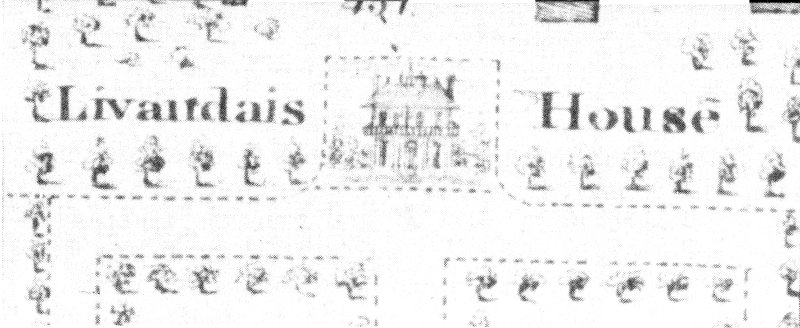 Livaudais House